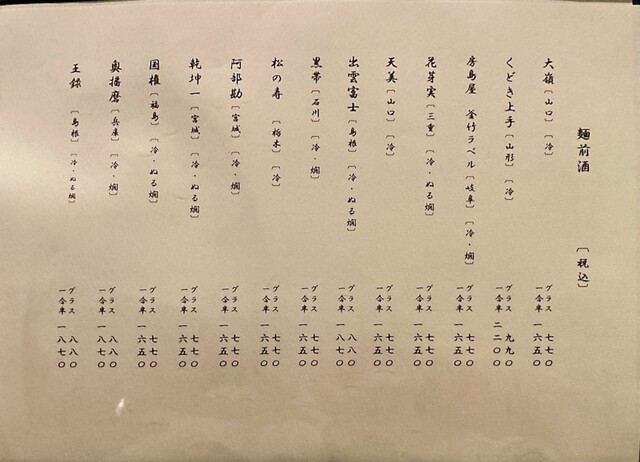 麺前酒 [税込]
大嶺 [山口] [冷]
グラス 七七〇
一合半 一六五〇
くどき上手 [山形] [冷]
グラス 九九〇
一合半 二二〇〇
房島屋 釜竹ラベル [岐阜] [冷・燗]
グラス 七七〇
一合半 一六五〇
花芽実 [三重] [冷・ぬる燗]
グラス 七七〇
一合半 一六五〇
天美 [山口] [冷]
グラス 七七〇
一合半 一六五〇
出雲富士 [島根] [冷・ぬる燗]
グラス 八八〇
一合半 一八七〇
黒帯 [石川] [冷・燗]
グラス 七七〇
一合半 一六五〇
松の寿 [栃木] [冷]
グラス 七七〇
一合半 一六五〇
阿部勘 [宮城] [冷・燗]
グラス 七七〇
一合半 一六五〇
乾坤一 [宮城] [冷・ぬる燗]
グラス 七七〇
一合半 一六五〇
国権 [福島] [冷・ぬる燗]
グラス 七七〇
一合半 一六五〇
奥播磨 [兵庫] [冷・燗]
グラス 八八〇
一合半 一八七〇
王録 [島根] [冷・ぬる燗]
グラス 八八〇
一合半 一八七〇